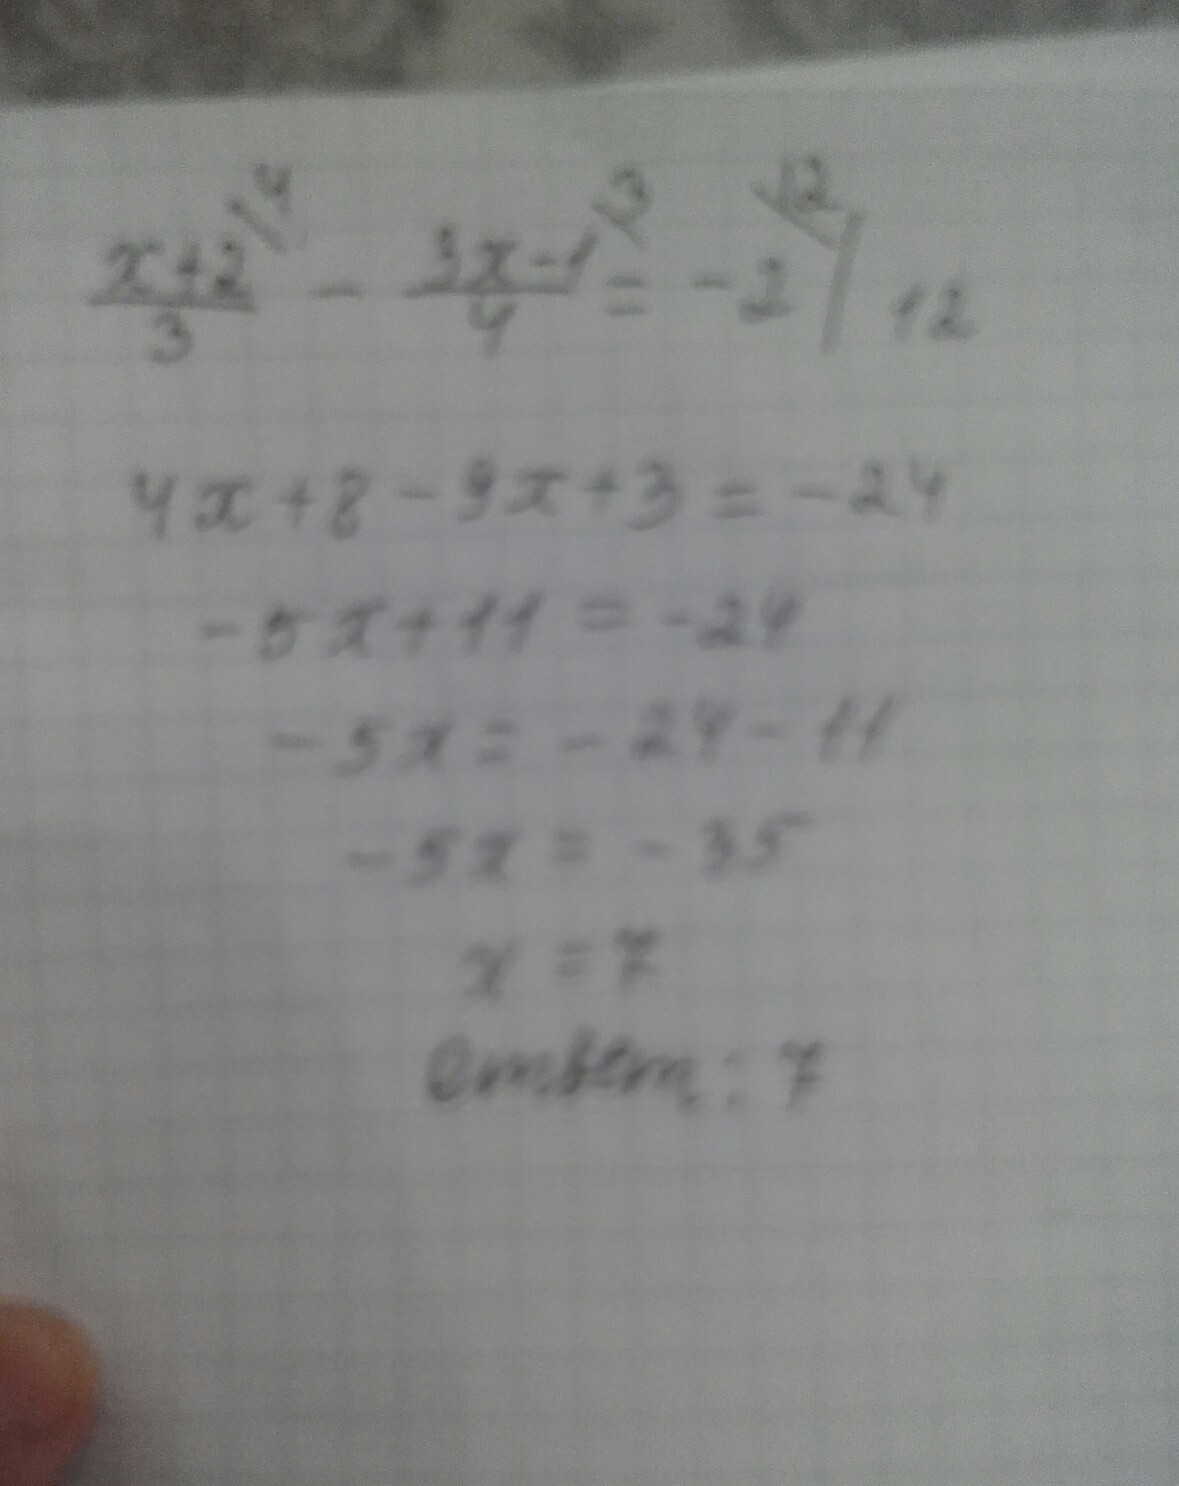 x+2/3 \4 - 3x-1/4 \3 = -2 \12 | 12
4x+8-9x+3=-24
-5x+11=-24
-5x=-24-11
-5x=-35
x=7
Ответ: 7